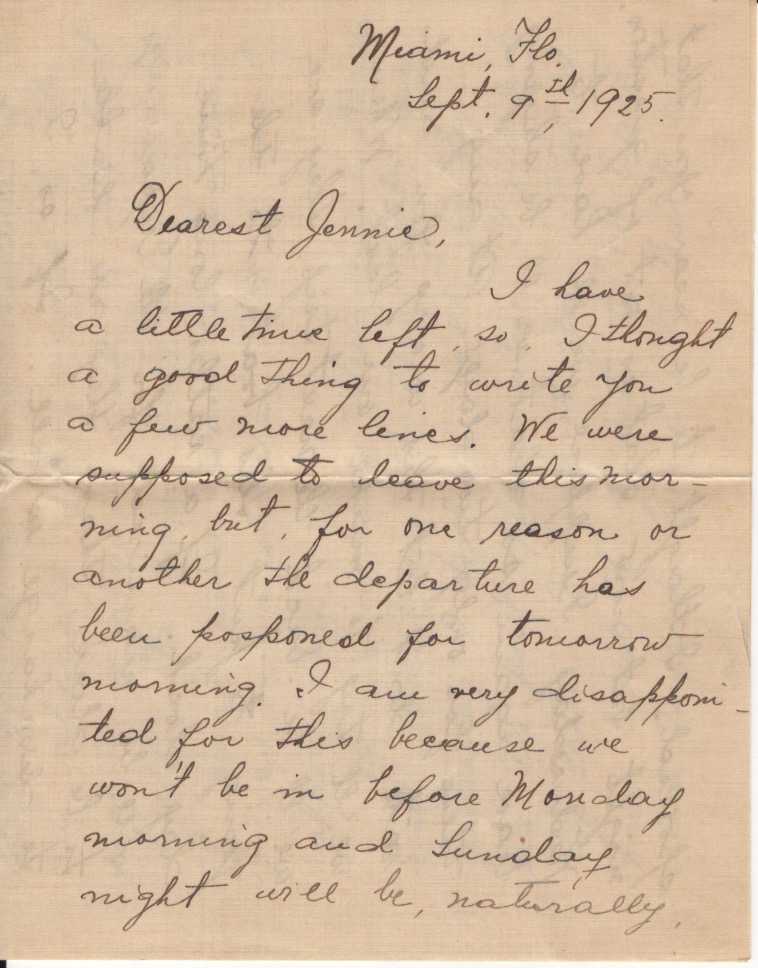 Miami, Flo.
Sept. 9th, 1925.
Dearest Jennie,
I have
a little time left, so, I thought
a good thing to write you
a few more lines. We were
supposed to leave this mor-
ning, but, for one reason or
another the departure has
been posponed for tomorrow
morning. I am very disappoin-
ted for this because we
won't be in before Monday
morning and Sunday
night will be, naturally,